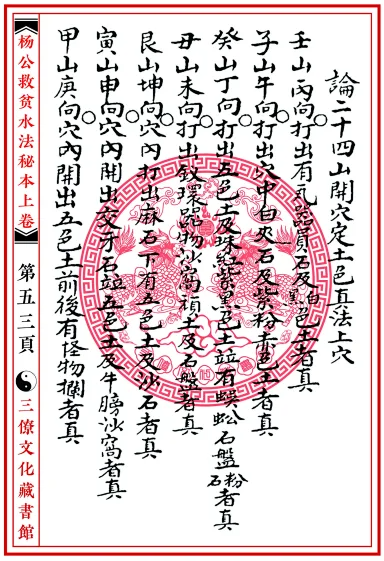 論二十四山開穴定土色真法上穴
壬山丙向打出有瓦器員石及黑白色土者真
子山午向打出穴中白夾石及紫粉赤色土者真
癸山丁向打出五色土及珠紅紫黑色土並有蜈蚣石盤石粉者真
丑山未向打出釵環器物沙窩頑土及石盤者真
艮山坤向穴內打出麻石下有五色土及沙石者真
寅山申向穴內開出交牙石並五色土及牛膀沙窩者真
甲山庚向穴內開出五色土前後有怪物攔者真
杨公救贫水法秘本上卷
第五三頁
三僚文化藏書館